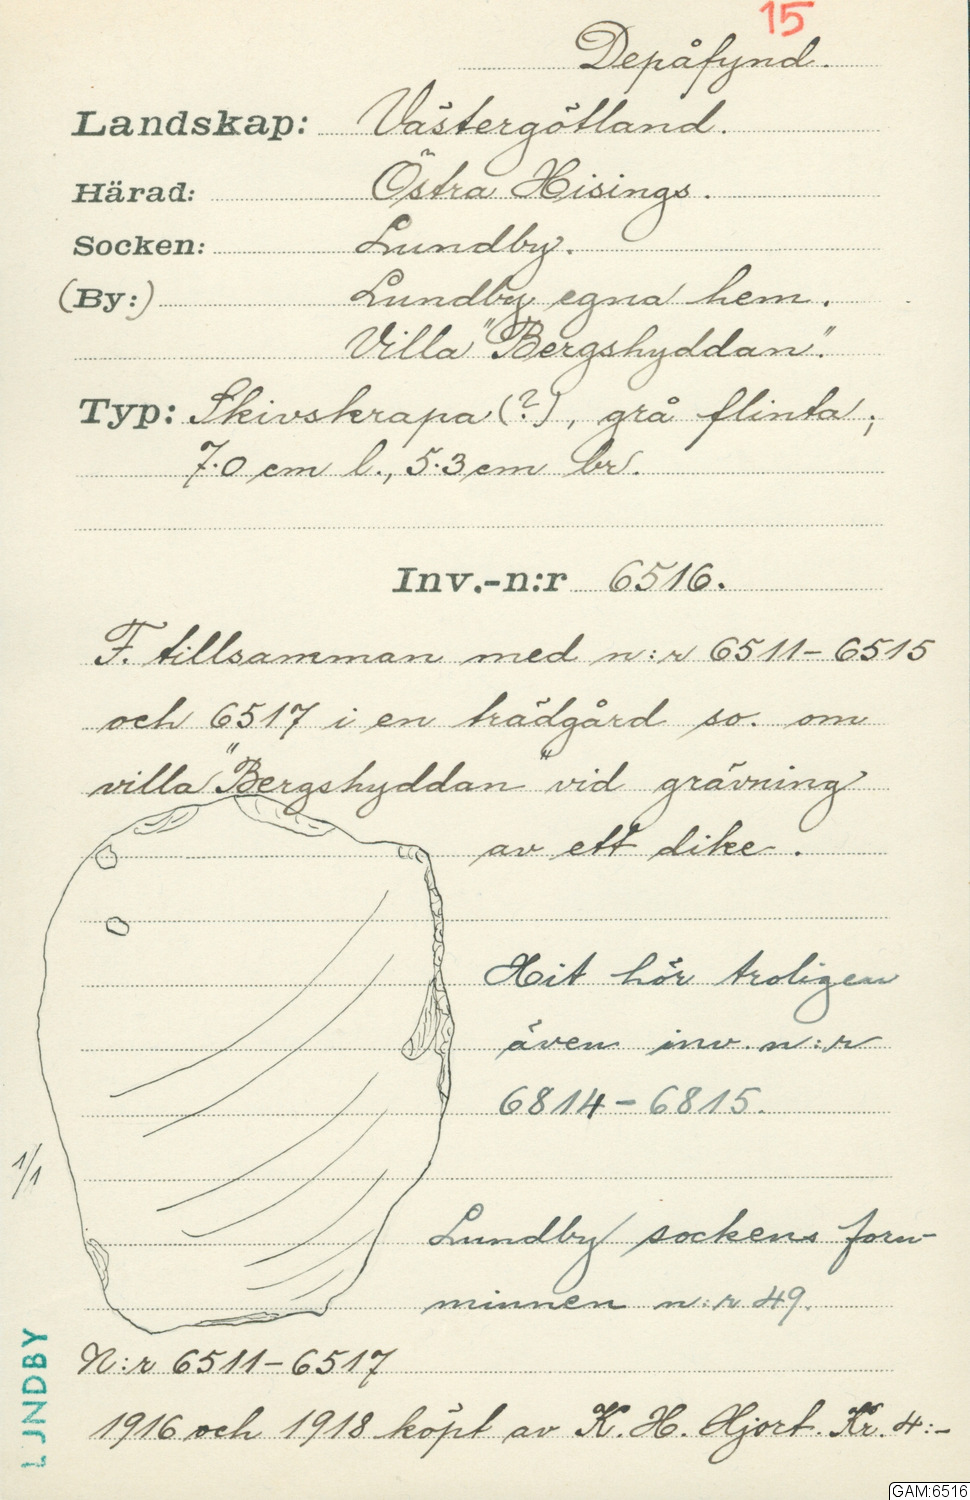 15
Depåfynd.
Landskap: Västergötland.
Härad: Östra Hisings.
Socken: Lundby.
(By:) Lundby egna hem.
Villa "Bergshyddan".
Typ: Skivskrapa (?), grå flinta;
7.0 cm l., 5.3 cm br.
Inv.-n:r 6516.
F. tillsamman med n:r 6511-6515
och 6517 i en trädgård so. om
villa "Bergshyddan" vid grävning
av ett dike.
Hit hör troligen
även inv. n:r
6814-6815.
1/1
Lundby sockens forn-
minnen n:r 49.
N:r 6511-6517
1916 och 1918 köpt av K. H. Hjort. Kr. 4:-
LUNDBY
GAM:6516